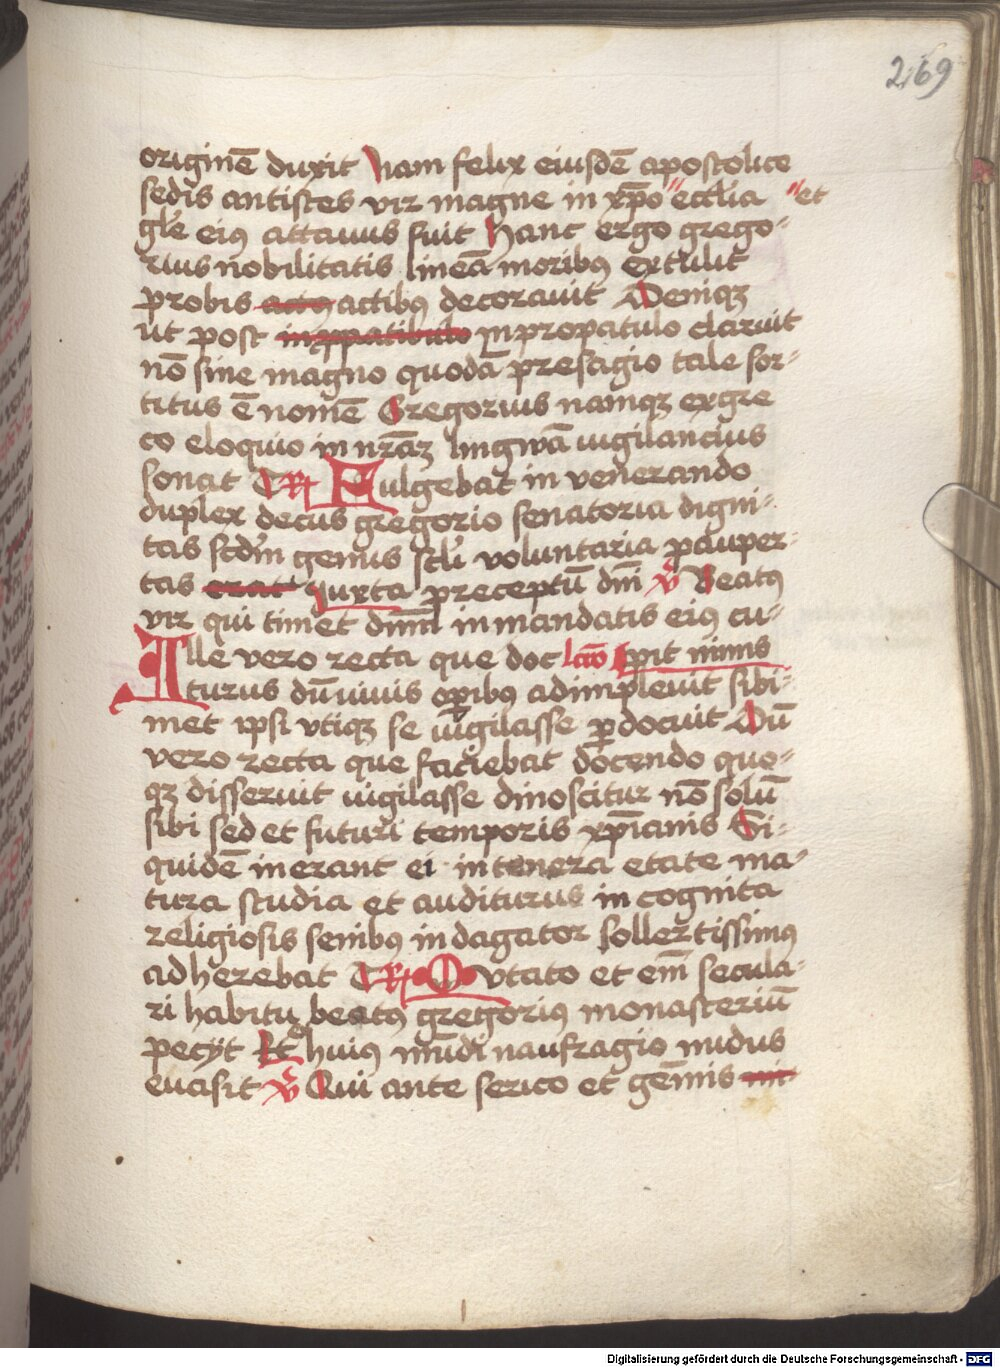 269
originē duxit Nam felix eiusdē apostolice
sedis antistes vir magne in xp̄o ecclīa et
gl̄e eiꝰ attauus fuit Hanc ergo grego-
rius nobilitatis lineā moribꝰ extulit
probis actꝰ actibꝰ decorauit Deniqꝫ
ut post in propatulo claruit
nō sine magno quodā presagio tale sor-
titus ē nomē Gregorius namqꝫ ex gre
co eloquio in nr̄aꝫ lingwā uigilancius
sonat R Fulgebat in venerando
duplex decus gregorio senatoria digni-
tas scdm̄ genus scl̄i voluntaria pauper-
tas erat iuxta preceptū dn̄i v̄ Beatꝰ
vir qui timet dn̄m in mandatis eiꝰ cu-
Ille vero recta que doc lctō pit nimis
iturus dū viuis oꝑibꝰ adimpleuit sibi-
met ipsi vtiqꝫ se uigilasse ꝑdocuit Dū
vero recta que faciebat docendo quo-
qꝫ disseruit uigilasse dinoscitur nō solū
sibi sed et futuri temporis xp̄ianis Si-
quidē inerant ei in tenera etate ma-
tura studia et auditurus incognita
religiosis senibꝰ indagator sollertissimꝰ
adherebat R Mutato et em̄ secula-
ri habitu beatꝰ gregorius monasteriū
pecijt Et huiꝰ mūdi naufragio nudus
euasit v̄ Qui ante serico et gēmis nit
Digitalisierung gefördert durch die Deutsche Forschungsgemeinschaft - DFG